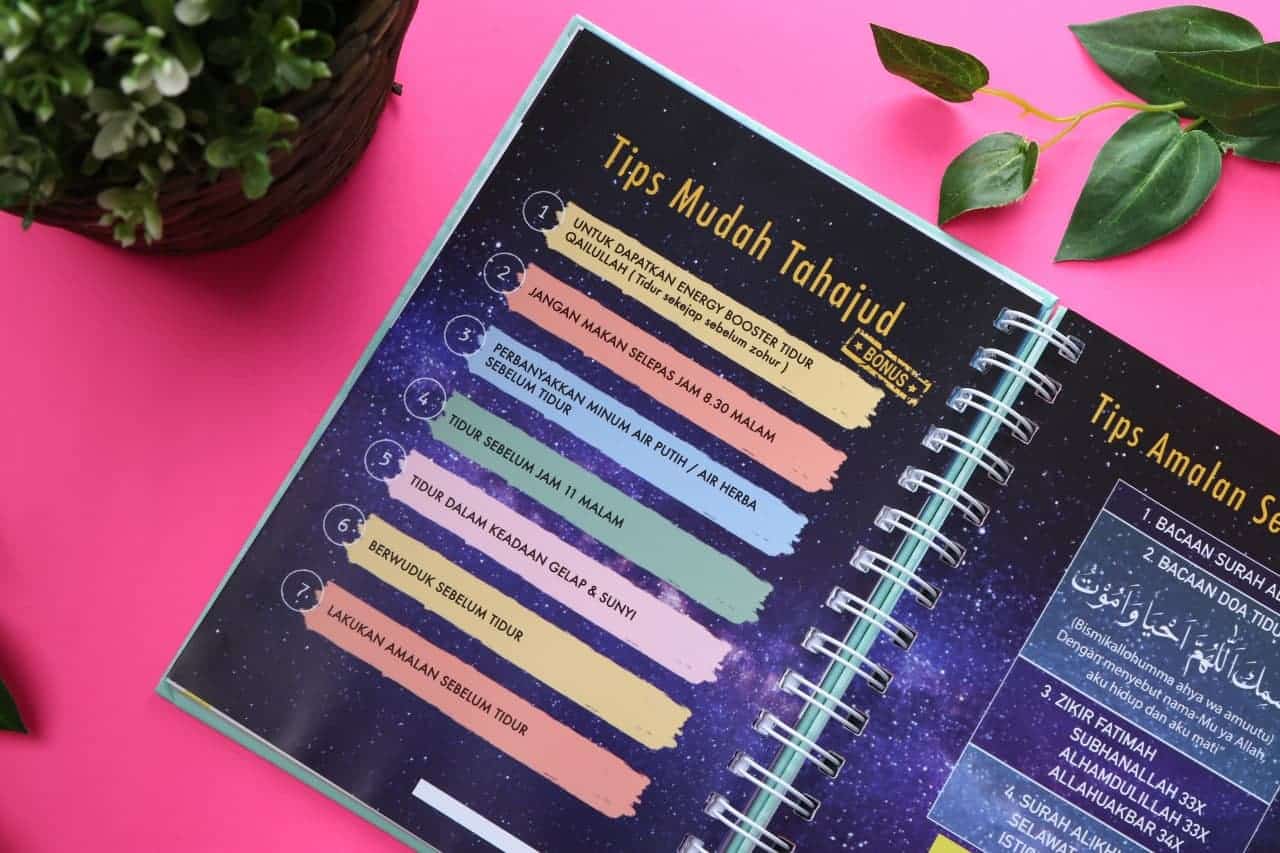 Tips Mudah Tahajud
★ BONUS ★
1
UNTUK DAPATKAN ENERGY BOOSTER TIDUR
QAILULLAH ( Tidur sekejap sebelum zohur )
2
JANGAN MAKAN SELEPAS JAM 8.30 MALAM
3
PERBANYAKKAN MINUM AIR PUTIH / AIR HERBA
SEBELUM TIDUR
4
TIDUR SEBELUM JAM 11 MALAM
5
TIDUR DALAM KEADAAN GELAP & SUNYI
6
BERWUDUK SEBELUM TIDUR
7
LAKUKAN AMALAN SEBELUM TIDUR
Tips Amalan
1. BACAAN SURAH
2. BACAAN DOA TIDU
اللّٰهُمَّ اَحْيَا وَاَمُوْتُ
(Bismikallohumma ahya wa amuutu)
Dengan menyebut nama-Mu ya Allah,
aku hidup dan aku mati"
3. ZIKIR FATIMAH
SUBHANALLAH 33X
ALHAMDULILLAH 33X
ALLAHUAKBAR 34X
4. SURAH ALIKH
SELAWAT